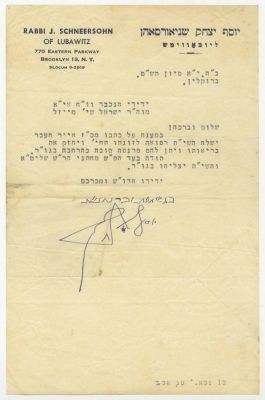 RABBI J. SCHNEERSOHN
OF LUBAWITZ
770 EASTERN PARKWAY
BROOKLYN 13, N. Y.
SLOCUM 6-2919
יוסף יצחק שניאורסאהן
ליובאוויטש
ב"ה, י"א סיון הש"ט,
ברוקלין.
ידידי הנכבד וו"ח אי"א
מוה"ר ישראל שי'
שלום וברכה!
במענה על כתבו מכ"ז אייר העבר
ישלח השי"ת רפואה לזוגתו תחי' ויחזק את
בריאותו ויתן להם פרנסה טובה בהרחבה בגו"ר.
תודה בעד הפ"ש מחתני הר"ש שליט"א
והשי"ת יצליחו בגו"ר.
ידידו הדו"ש ומברכם